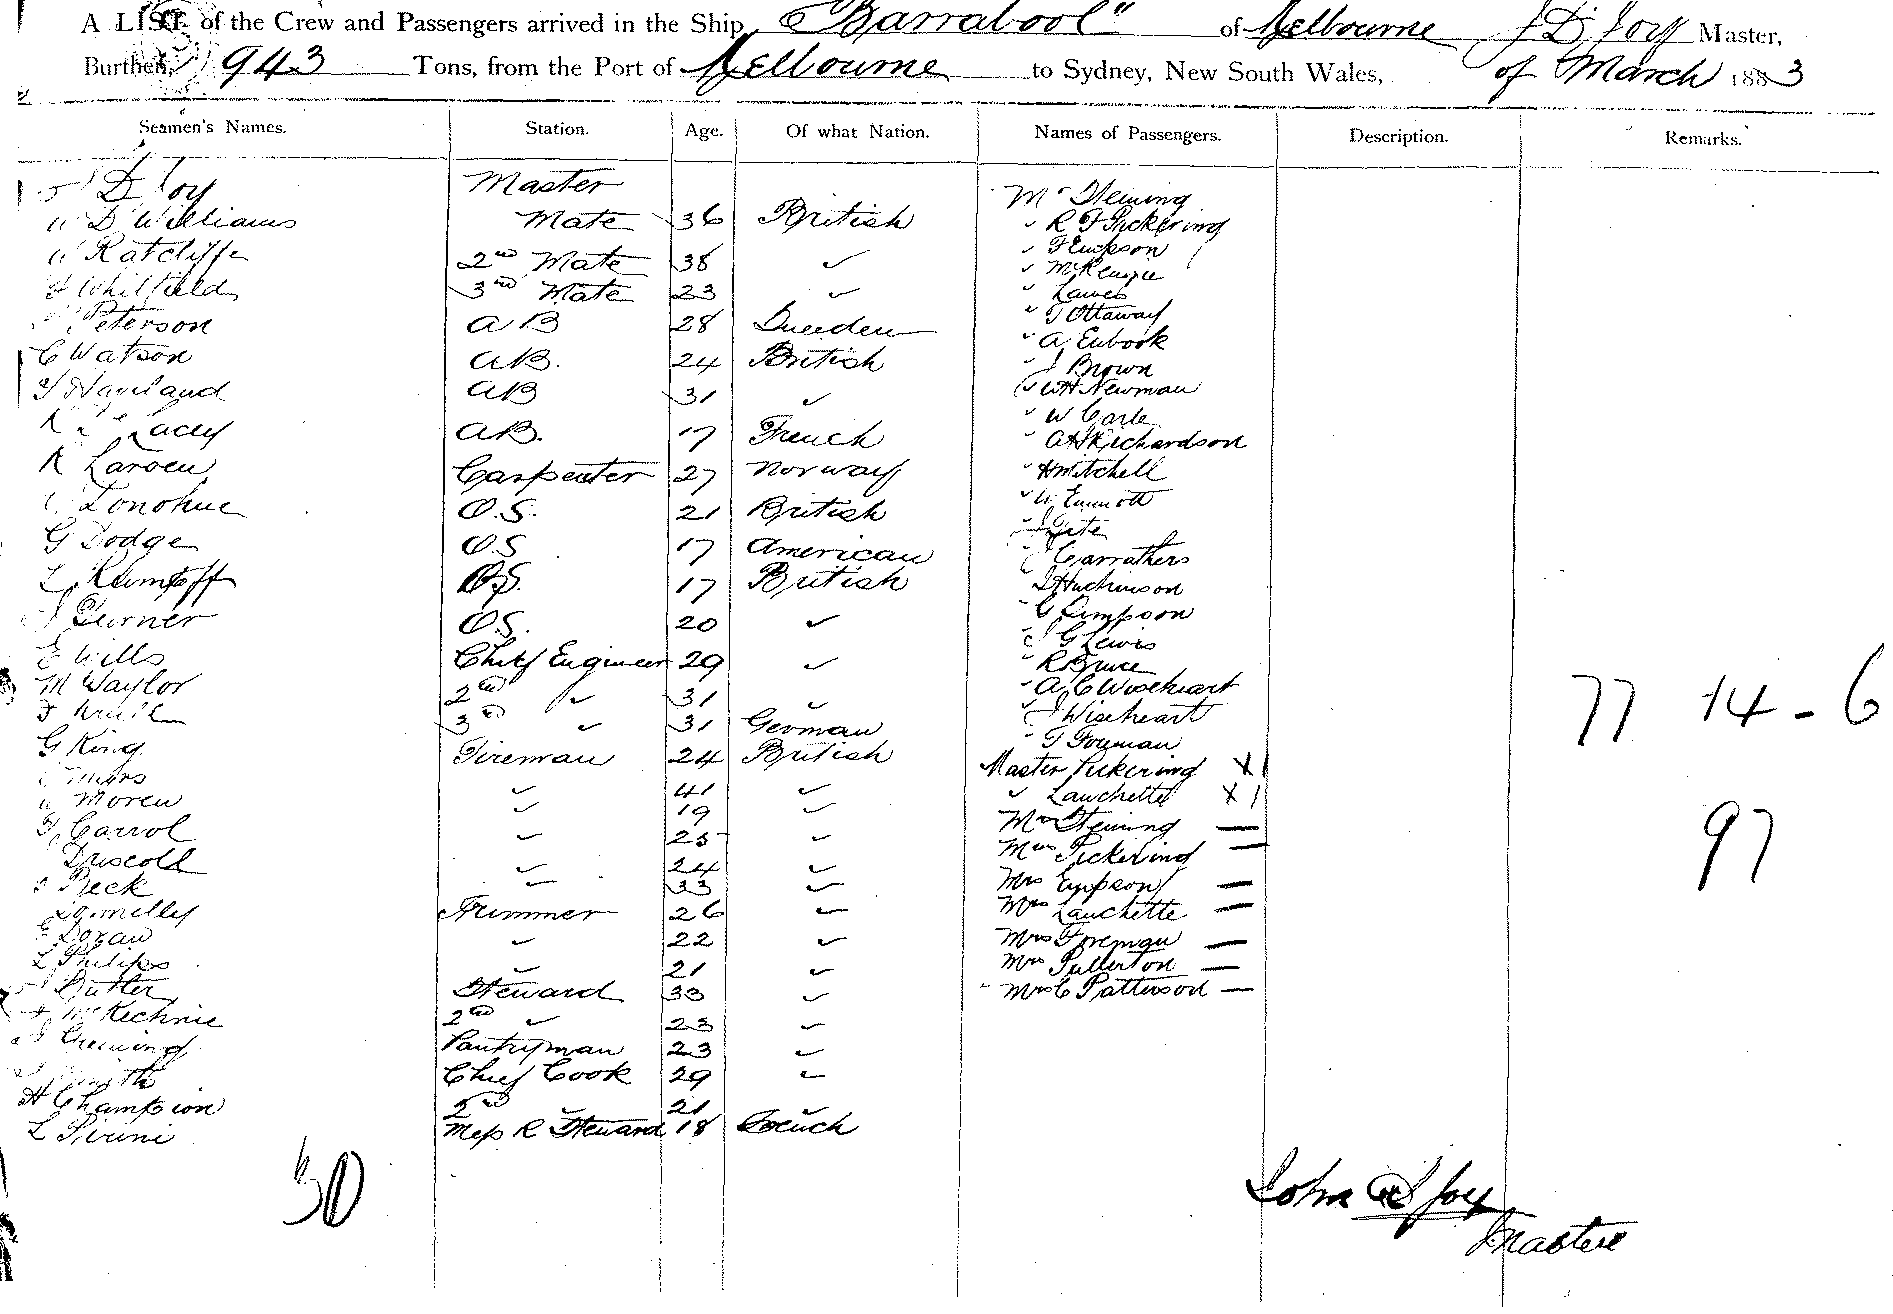 A LIST of the Crew and Passengers arrived in the Ship "Barrabool" of Melbourne J D Joy Master,
Burthen, 943 Tons, from the Port of Melbourne to Sydney, New South Wales, of March 1883
Seamen's Names. Station. Age. Of what Nation. Names of Passengers. Description. Remarks.
J D Joy Master Mr Fleming
W D Williams Mate 36 British " R F Pickering
W Ratcliffe 2nd Mate 38 " " F Empson
H Whitfield 3rd Mate 23 " " McKenzie
Peterson AB 28 Sweeden " Lawes
C Watson AB. 24 British " T Ottaway
T Haviland AB 31 " " A Eubook
Lacey AB. 17 French " J Brown
K Larsen Carpenter 27 Norway " W H Newman
Donohue O.S. 21 British " W Carle
G Dodge O.S 17 American " A H Richardson
L Rumpff O.S. 17 British " H Mitchell
J Turner O.S. 20 " " W Emmott
E Wills Chief Engineer 29 " " J Tate
M Waylor 2nd " 31 " " J Carrathers
3rd " 31 German " D Hutchinson
G King Fireman 24 British " G Simpson
" 41 " " J G Lewis
W Moren " 19 " " R Bruce
T Carrol " 25 " " A C Wiseheart
Driscoll " 24 " " J Wiseheart
Beck " 33 " " T Foreman
Donnelly Trimmer 26 " Master Pickering X 1
E Doran " 22 " " Lauchette X 1
L Philips " 21 " Mrs Fleming —
J Butler Steward 33 " Mrs Pickering —
McKechnie 2nd " 23 " Mrs Empson —
Pantryman 23 " Mrs Lauchette —
Smith Chief Cook 29 " Mrs Foreman —
H Champion 2nd " 21 " Mrs Fullerton —
L Pirini Mess R Steward 18 French " Mrs C Patterson —
77 14 - 6
97
30
John D Joy
Master